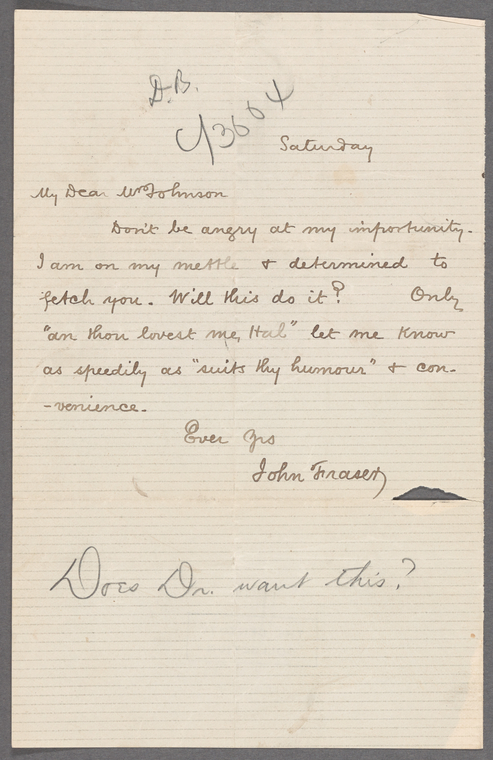 D.B.
C/3664
Saturday
My Dear Mr Johnson
Don't be angry at my importunity.
I am on my mettle & determined to
fetch you. Will this do it? Only
"an thou lovest me, Hal" let me know
as speedily as "suits thy humour" & con-
-venience.
Ever Yrs
John Fraser
Does Dr. want this?